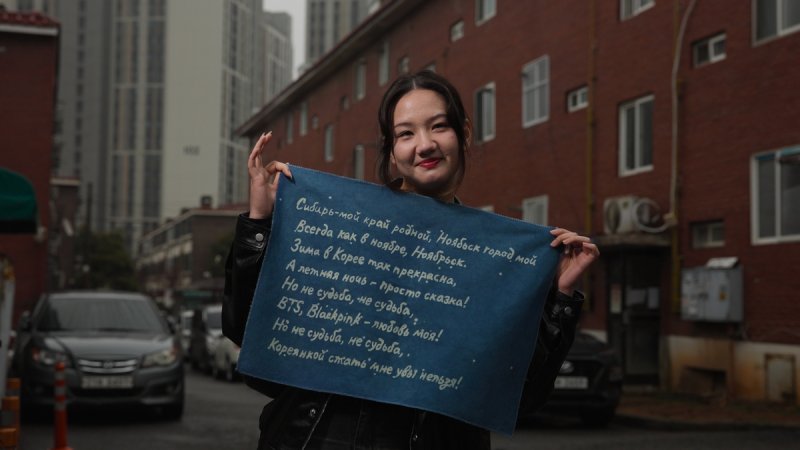 Сибирь-мой край родной, Ноябьск город мой
Всегда как в ноябре, Ноябрьск.
Зима в Корее так прекрасна,
А летная ночь - просто сказка!
Но не судьба, не судьба,
BTS, Blackpink - любовь моя!
Но не судьба, не судьба,
Кореянкой стать мне увы нельзя!